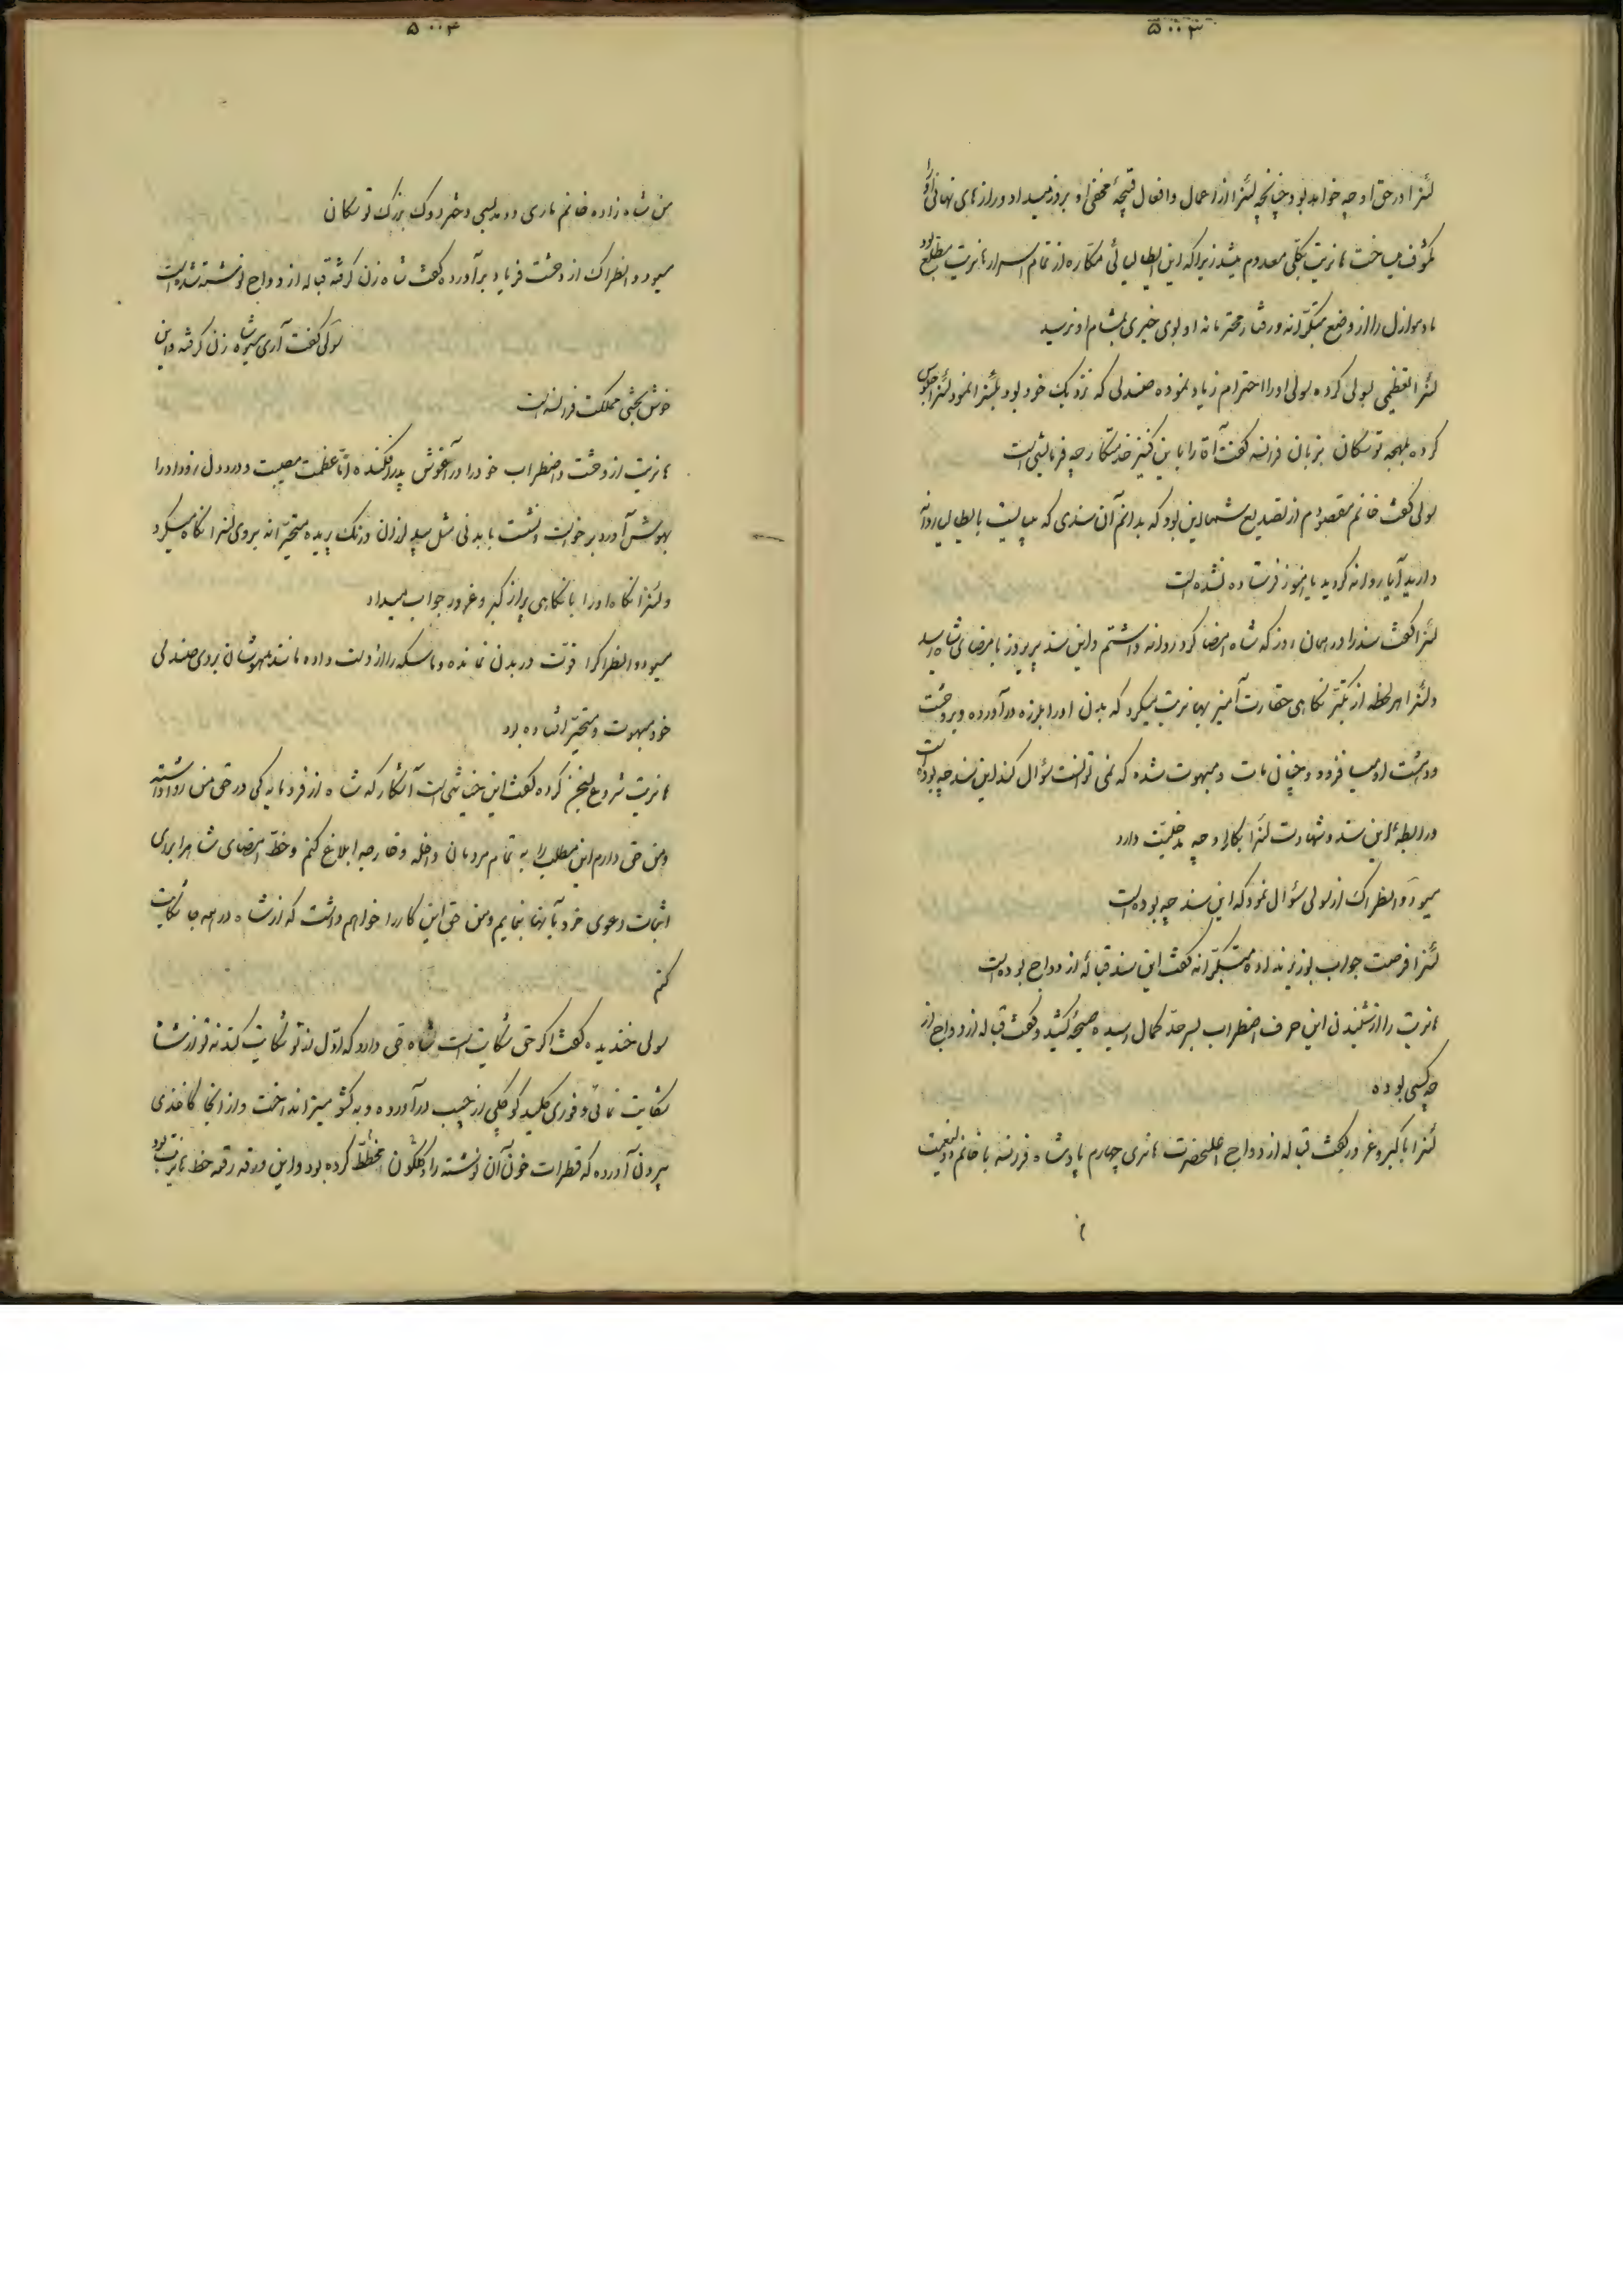 ۵۰۰۳
لئنرا در حق او چه خواهد بود چنانچه لئنرا از اعمال و افعال قبیحهٔ مخفی او بروز میداد و رازهای نهانی او را
مکشوف میساخت هانریت بکلی معدوم میشد زیرا که این ایطالیائی مکاره از تمام اسرار هانریت مطلع بود
مادموازل را از وضع متکبرانه و رفتار محترمانه او بوی خیری بمشام او نرسید
لئنرا تعظیمی بسولی کرده سولی او را احترام زیاد نموده صندلی که نزدیک خود بود بلئنرا نمود لئنرا جلوس
کرده بلهجه توسکان بزبان فرانسه گفت آقا را باین کنیز خدمتکار چه فرمایشی است
سولی گفت خانم مقصودم از تصدیع شما این بود که بدانم آن سندی که میبایست بایطالیا روانه
دارید آیا روانه کردید یا هنوز فرستاده نشده است
لئنرا گفت سند را در همان روز که شاه امضا کرد روانه داشتم و این سند پریروز بامضای شاه رسید
و لئنرا هر لحظه از تکبر نگاهی حقارت آمیز بهانریت میکرد که بدن او را بلرزه درآورده و بر وحشت
و دهشت او میافزود و چنان مات و مبهوت شده که نمی توانست سؤال کند این سند چه بوده است
و رابطهٔ این سند و شهادت لئنرا بکار او چه مدخلیت دارد
مسیو دوانطراک از سولی سؤال نمود که این سند چه بوده است
لئنرا فرصت جواب بوزیر نداده متکبرانه گفت این سند قبالهٔ ازدواج بوده است
هانریت را از شنیدن این حرف اضطراب بسرحد کمال رسیده صیحهٔ کشید و گفت قباله ازدواج از
چه کسی بوده
لئنرا با کبر و غرور گفت قباله ازدواج اعلیحضرت هانری چهارم پادشاه فرانسه با خانم ولینعمت
۵۰۰۴
من شاه زاده خانم ماری دو مدیسی دختر دوک بزرک توسکان
مسیو دوانطراک از وحشت فریاد برآورده گفت شاه زن گرفته قباله ازدواج نوشته شده است
سولی گفت آری شاه زن گرفته و این
خوش بختی مملکت فرانسه است
هانریت از وحشت و اضطراب خود را در آغوش پدر افکنده اما عظمت مصیبت و درد دل او را
بهوش آورد برخواست و نشست با بدنی مثل بید لرزان و رنگ پریده متحیرانه بروی لئنرا نگاه میکرد
و لئنرا نگاه او را با نگاهی پر از کبر و غرور جواب میداد
مسیو دوانطراک را قوت در بدن نمانده و ماسکه را از دست داده مانند بیهوشان بروی صندلی
خود مبهوت و متحیر افتاده بود
هانریت شروع بسخن کرده گفت این خیانتی است آشکار که شاه از فرومایه گی در حق من روا داشته
و من حق دارم این مطلب را به تمام مردمان داخله و خارجه ابلاغ کنم و خط امضای شاه را برای
اثبات دعوی خود بآنها بنمایم و من حق این کار را خواهم داشت که از شاه در همه جا شکایت
کنم
سولی خندیده گفت اگر حق شکایت است شاه حق دارد که اول از تو شکایت کند نه تو از شاه
شکایت نمائی و فوری کلید کوچکی از جیب درآورده و به کشو میز انداخت و از آنجا کاغذی
بیرون آورده که قطرات خون آن نوشته را گلگون و مخطط کرده بود و این ورقه رقعه خط هانریت بود